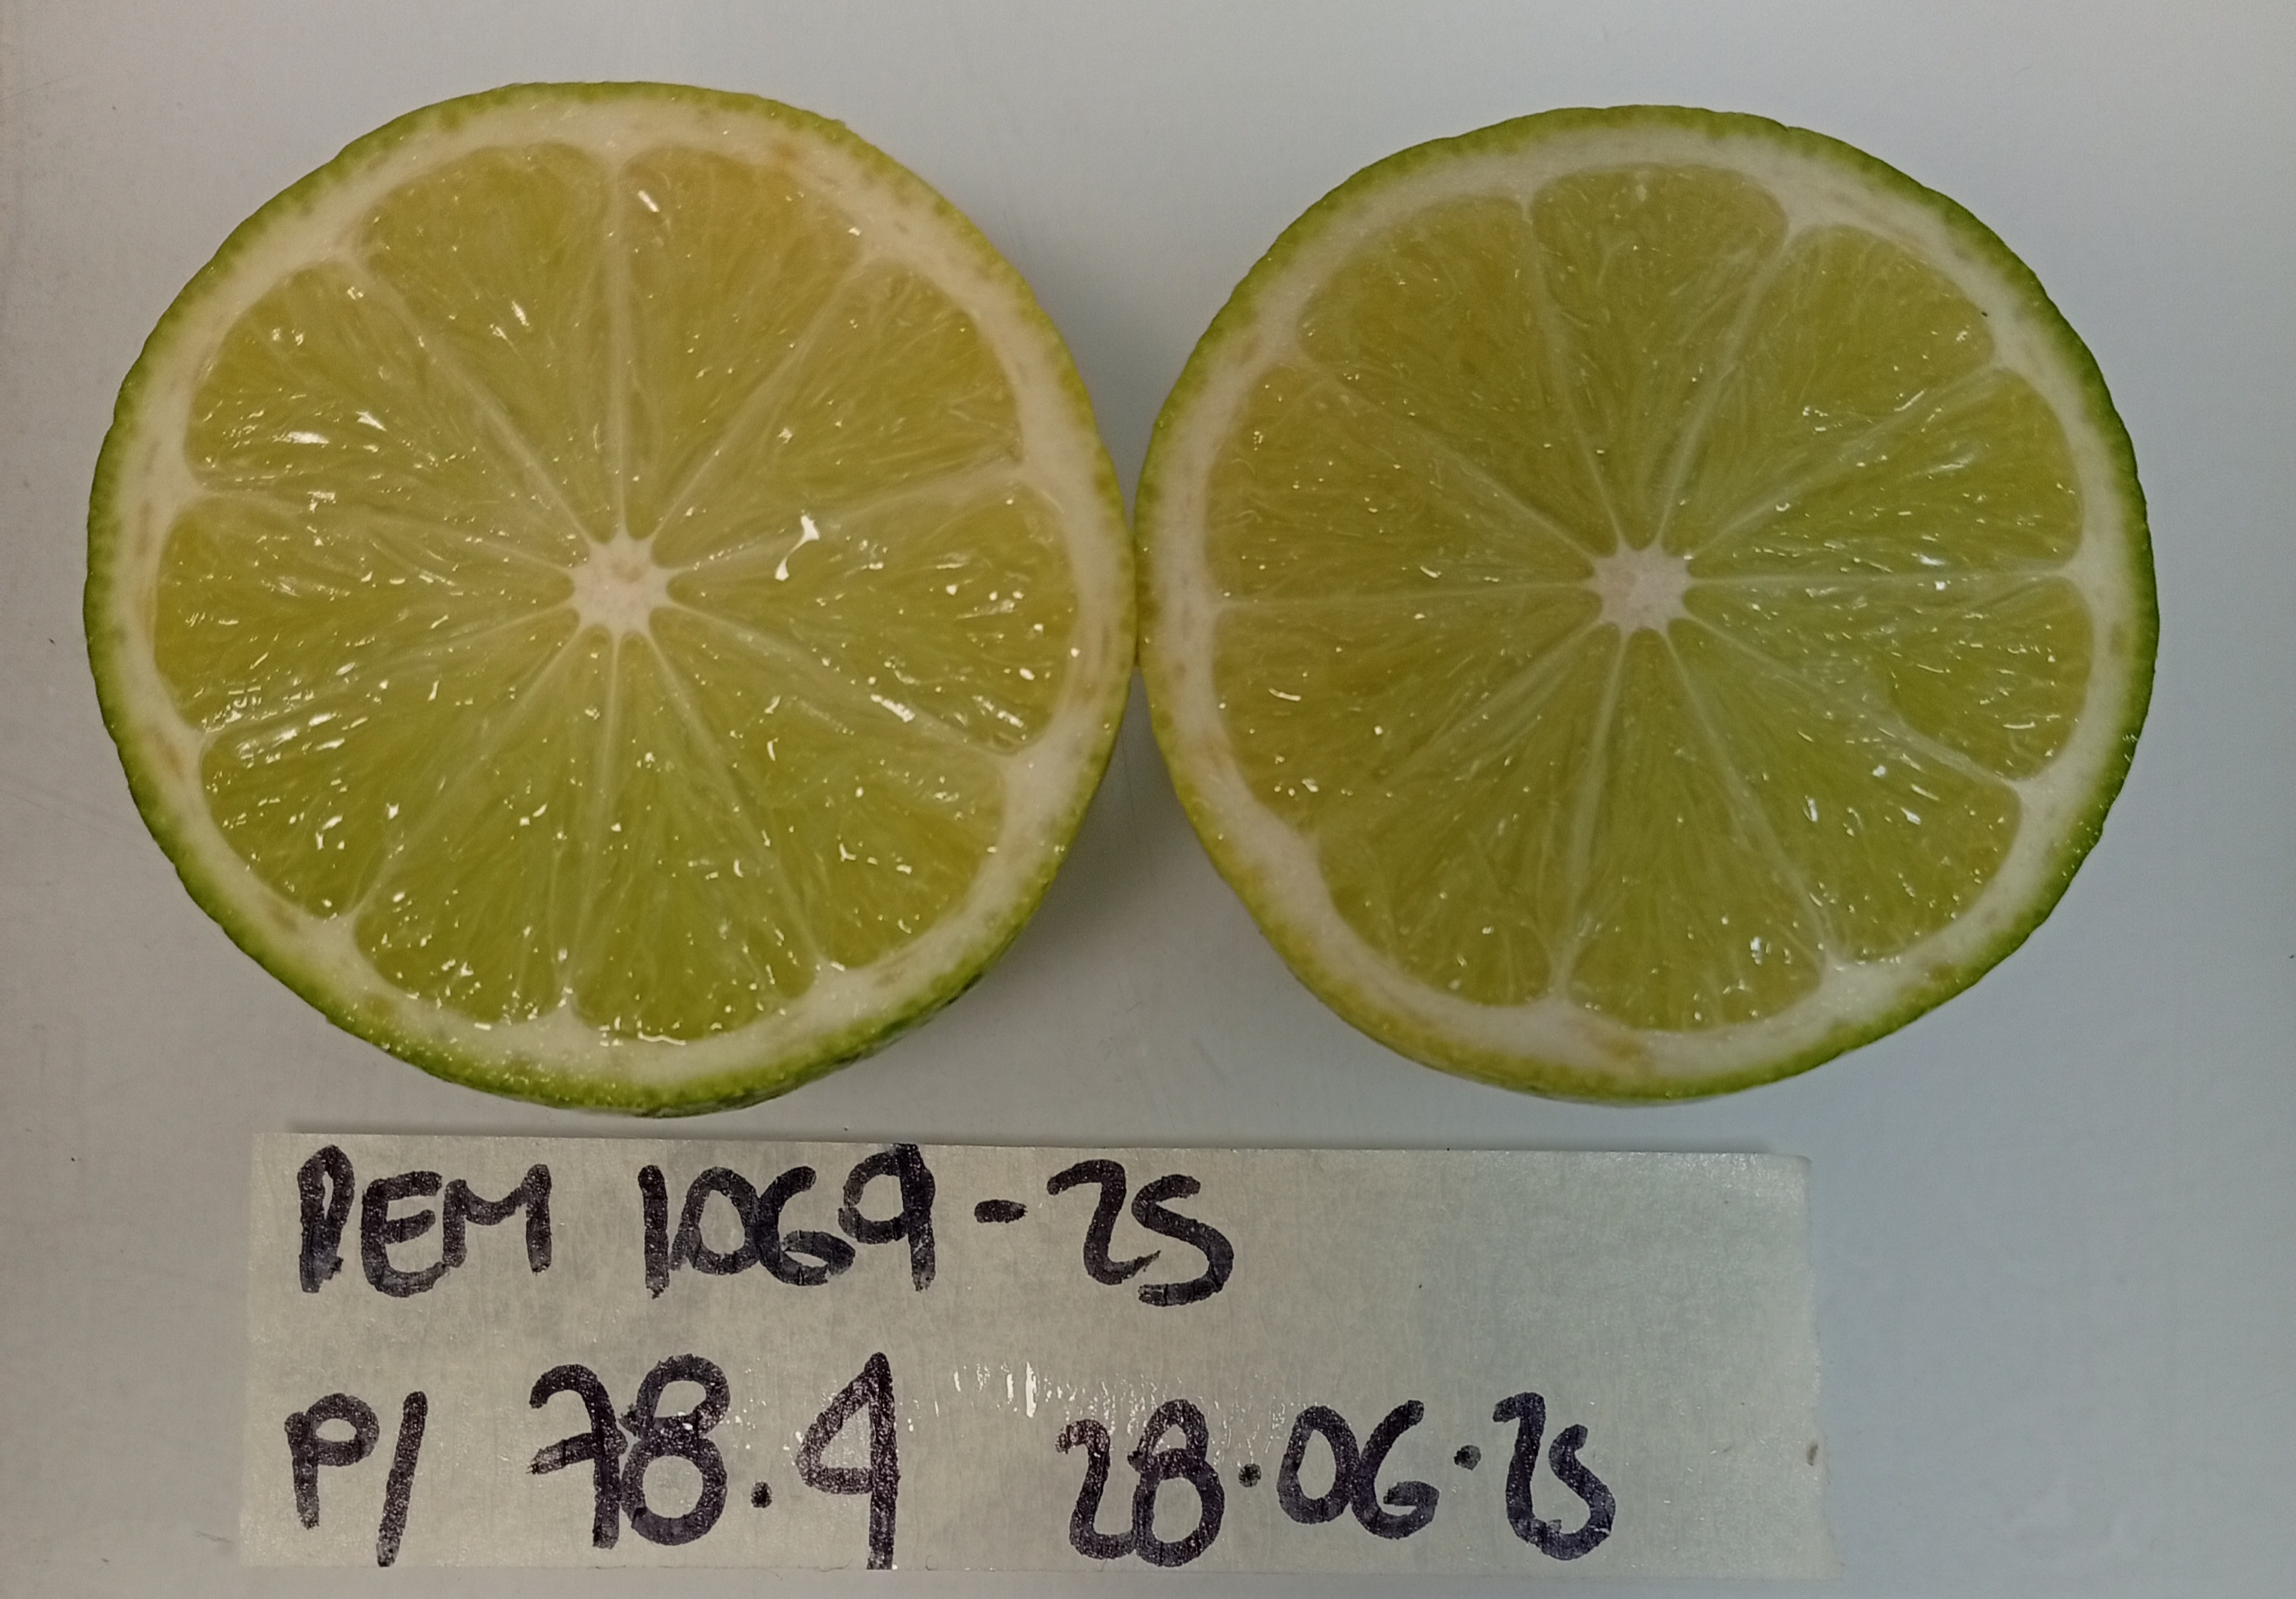 REM 1069-25
P/ 78.9 28.06.25